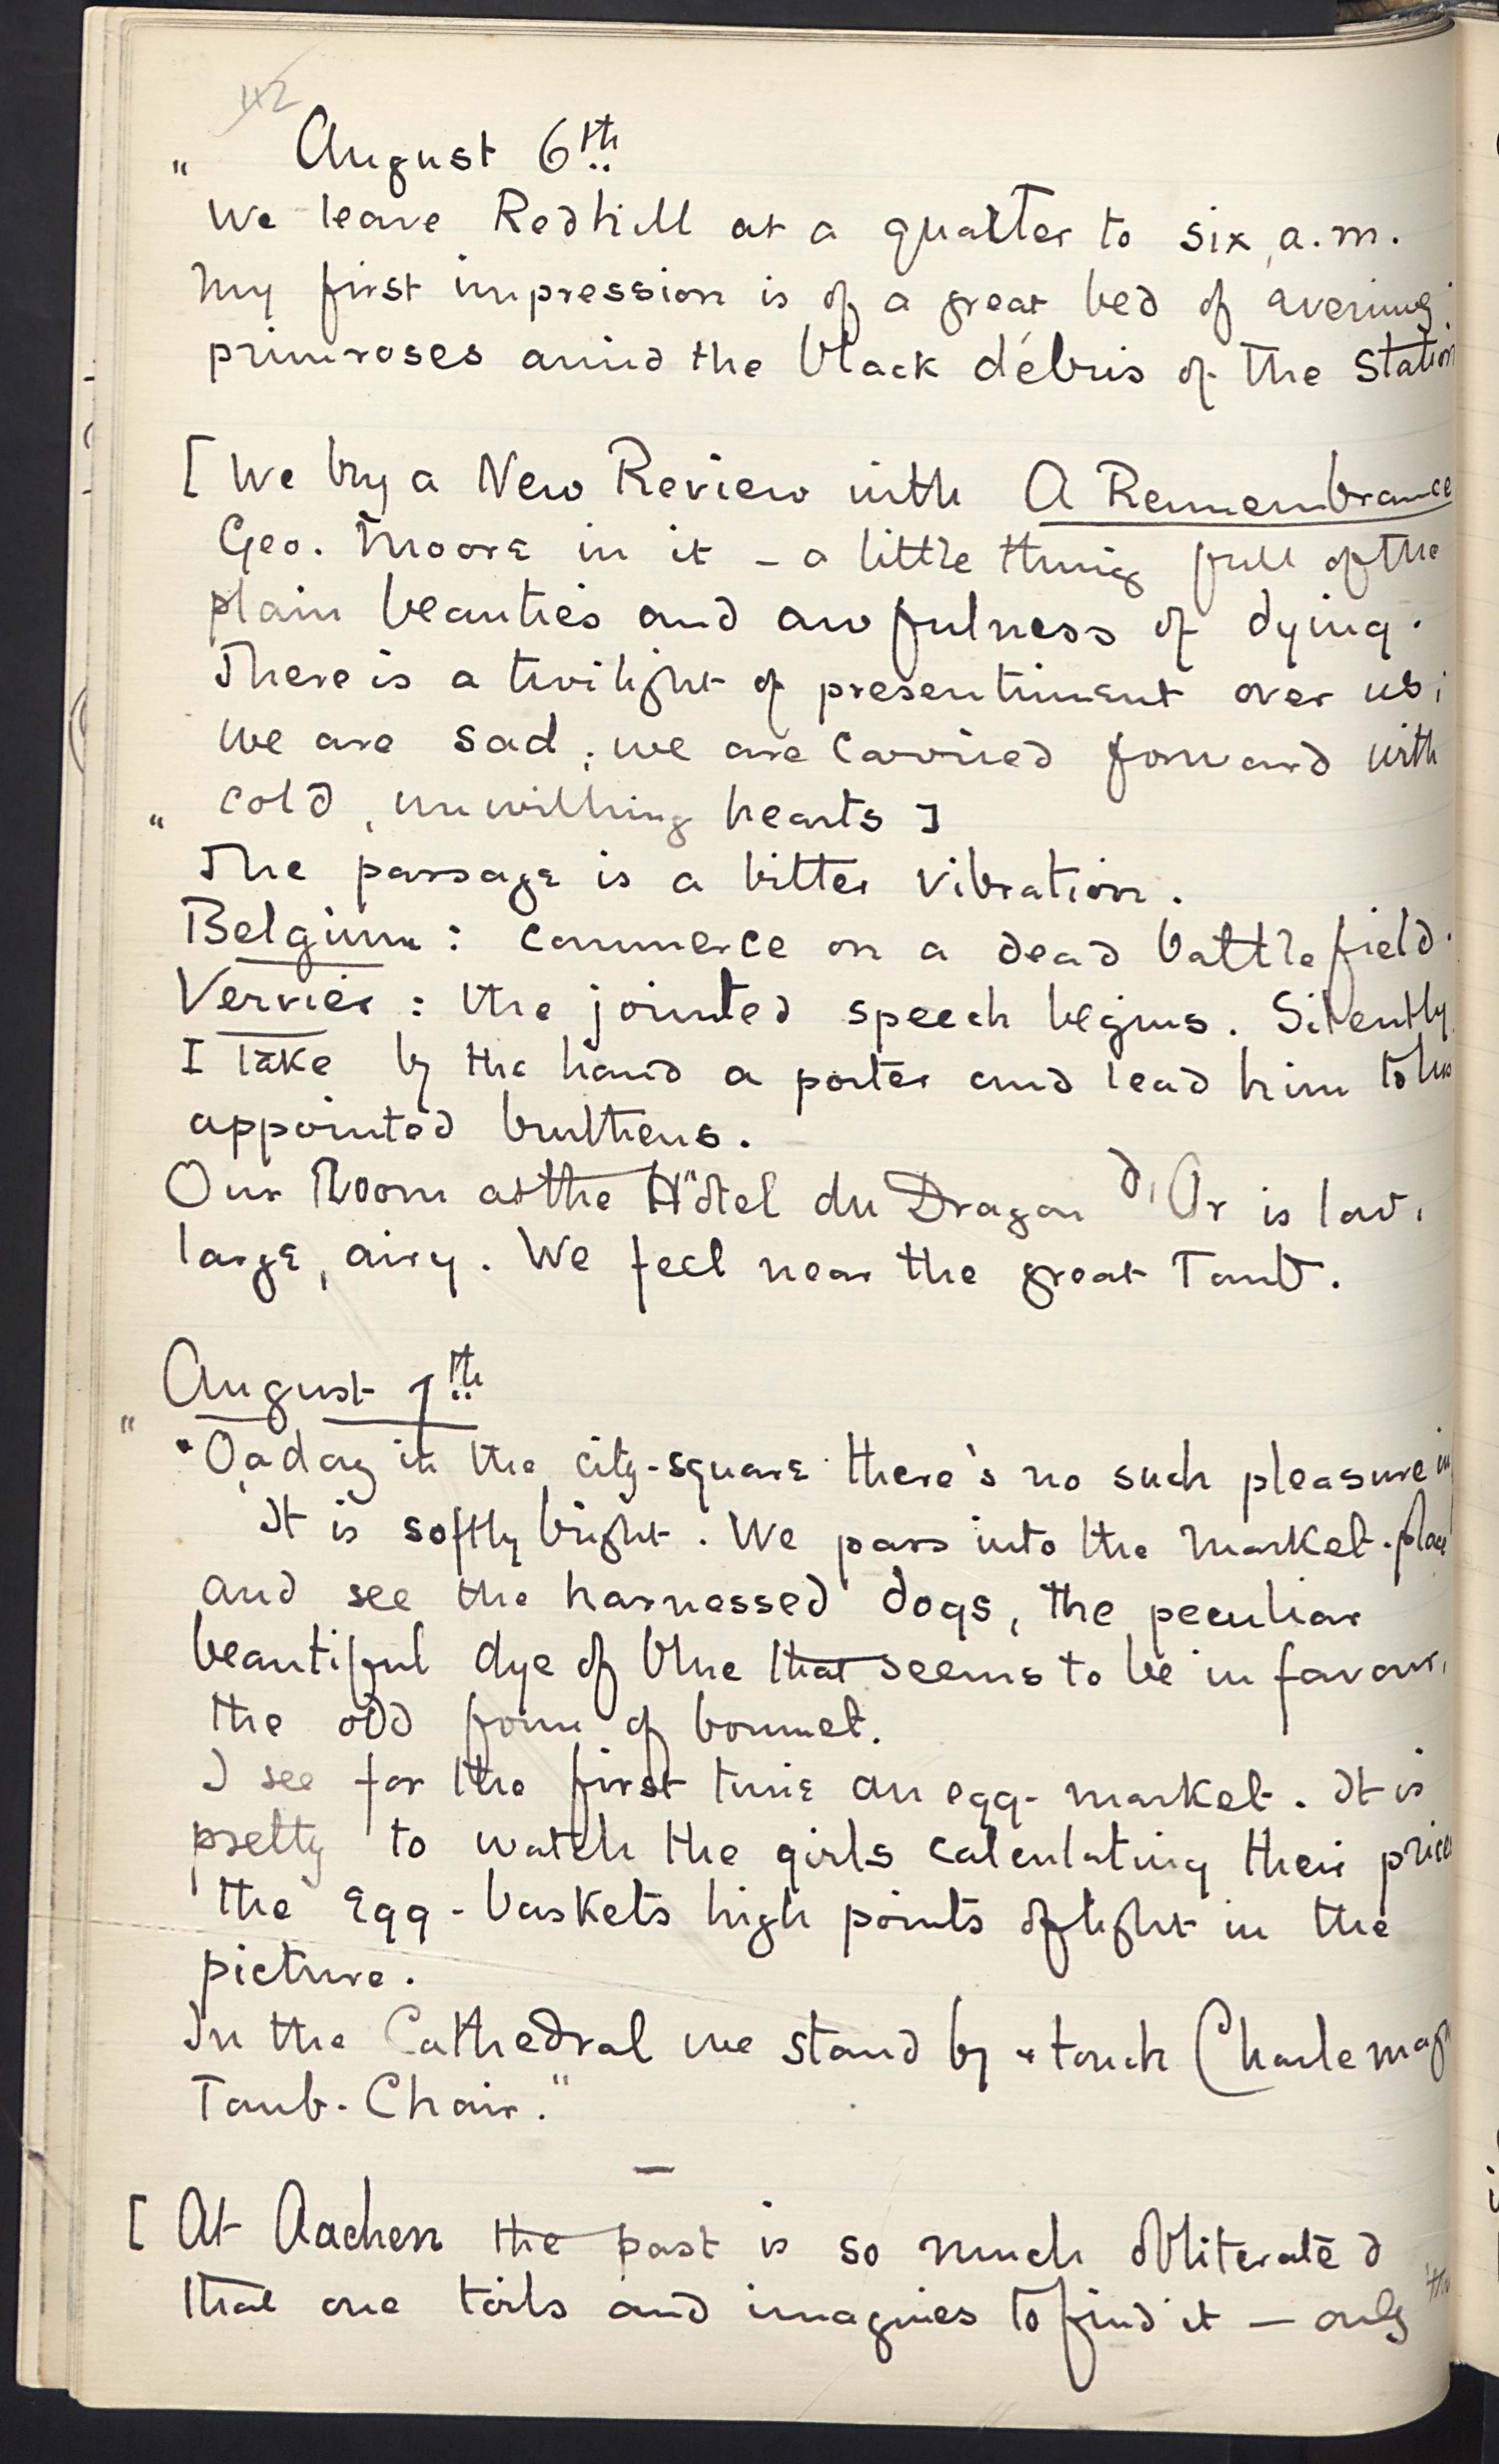 42
" August 6th
We leave Redhill at a quarter to six, a.m.
My first impression is of a great bed of evening
primroses amid the black débris of the station
[ We buy a New Review with A Remembrance
Geo. Moore in it – a little thing full of the
plain beauties and awfulness of dying.
There is a twilight of presentiment over us;
we are sad; we are carried forward with
" cold, unwilling hearts ]
The passage is a bitter vibration.
Belgium: commerce on a dead battlefield.
Vervier: the jointed speech begins. Silently
I take by the hand a porter and lead him to his
appointed burthens.
Our Room at the Hôtel du Dragon d'Or is low,
large, airy. We feel near the great Tomb.
August 7th
" "O a day in the city-square there's no such pleasure in
It is softly bright. We pass into the market-place
and see the harnessed dogs, the peculiar
beautiful dye of blue that seems to be in favour,
the odd form of bonnet.
I see for the first time an egg-market. It is
pretty to watch the girls calculating their price
the egg-baskets high points of light in the
picture.
In the Cathedral we stand by & touch Charlemagn
Tomb-Chair."
[ At Aachen the past is so much obliterated
that one toils and imagines to find it – only the